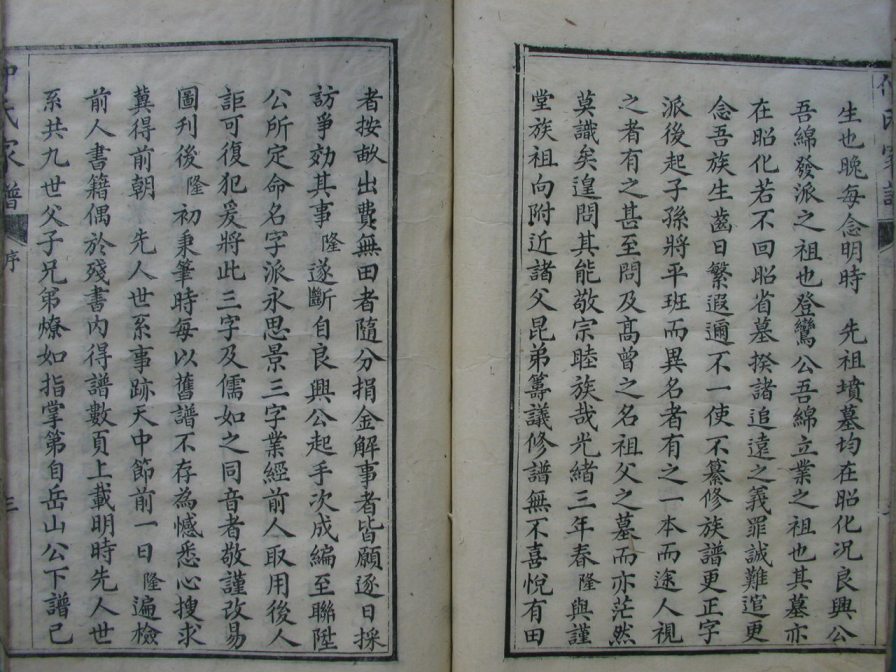 生也晚每念明時　先祖墳墓均在昭化况良興公
吾綿發派之祖也登鸞公吾綿立業之祖也其墓亦
在昭化若不回昭省墓揆諸追遠之義罪誠難逭更
念吾族生齒日繁遐邇不一使不纂修族譜更正字
派後起子孫將平班而異名者有之一本而途人視
之者有之甚至問及高曾之名祖父之墓而亦茫然
莫識矣遑問其能敬宗睦族哉光緒三年春隆與謹
堂族祖向附近諸父昆弟籌議修譜無不喜悅有田
者按畝出費無田者隨分捐金解事者皆願逐日採
訪爭効其事隆遂斷自良興公起手次成編至聯陞
公所定命名字派永思景三字業經前人取用後人
詎可復犯爰將此三字及儒如之同音者敬謹改易
圖刊後隆初秉筆時每以舊譜不存為憾悉心搜求
冀得前朝　先人世系事跡天中節前一日隆遍檢
前人書籍偶於殘書內得譜數頁上載明時先人世
系共九世父子兄弟燎如指掌第自岳山公下譜已
氏家譜
序
三